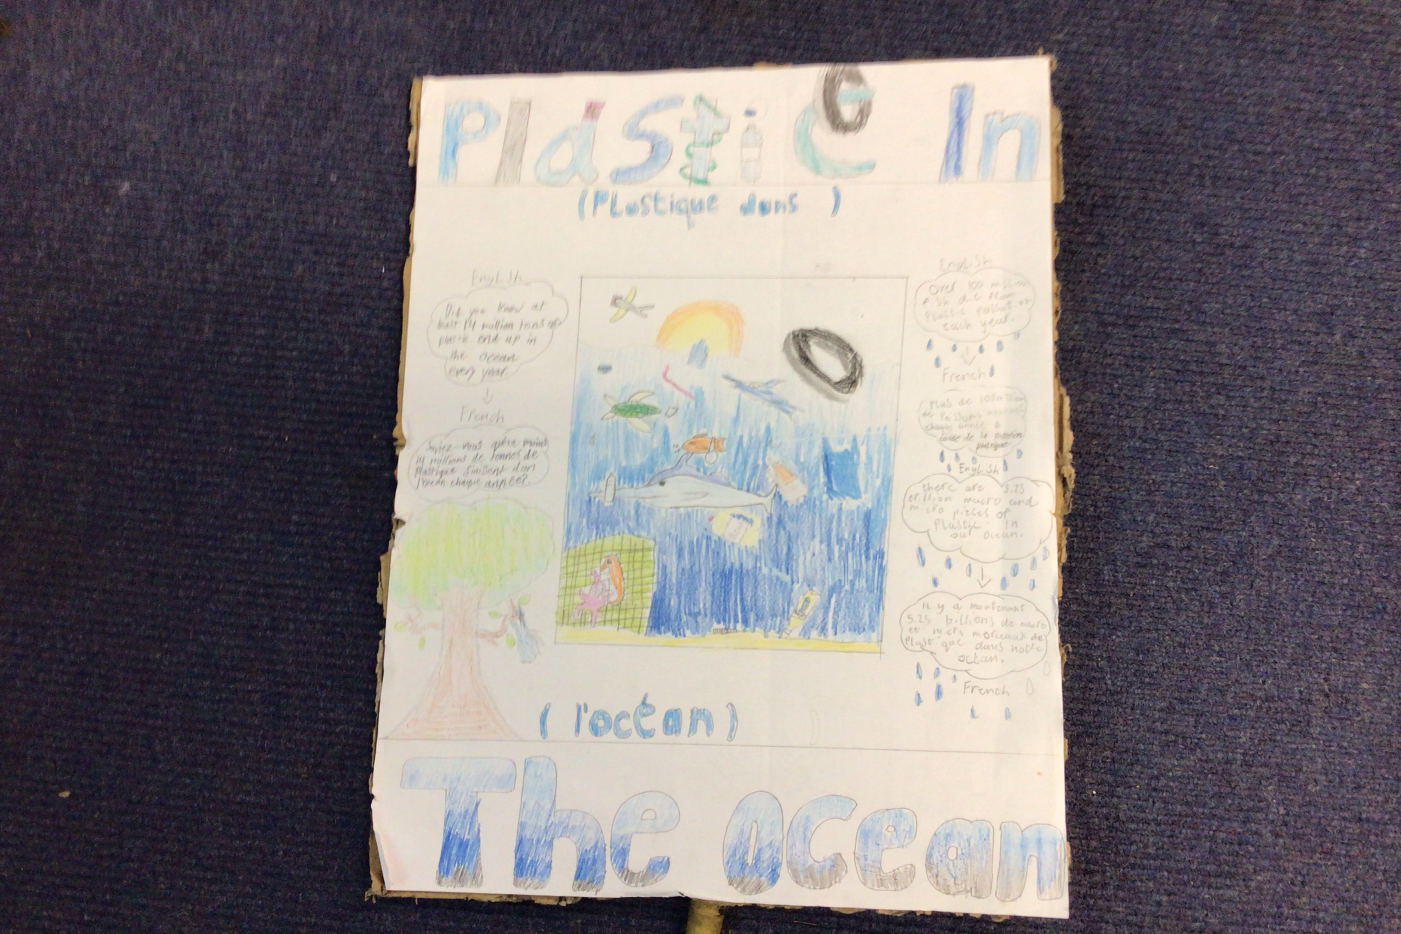 Plastic In
(Plastique dans )
English
Did you know at
least 14 million tons of
plastic end up in
the ocean
every year.
French
14 milliont de tonnes de
Plastique finissent dan
l'océan chaque année?
English
Over 100 million
fish die from
Plastic pollution
each year.
French
Plus de 100
chaque année à
cause de la
English
there are 5.25
trillion macro and
micro pieces of
Plastic in
our ocean.
Il y a maintenant
5.25 billions de macro
et micro morceaux de
Plastique dans notre
océan.
French
(l'océan)
The ocean